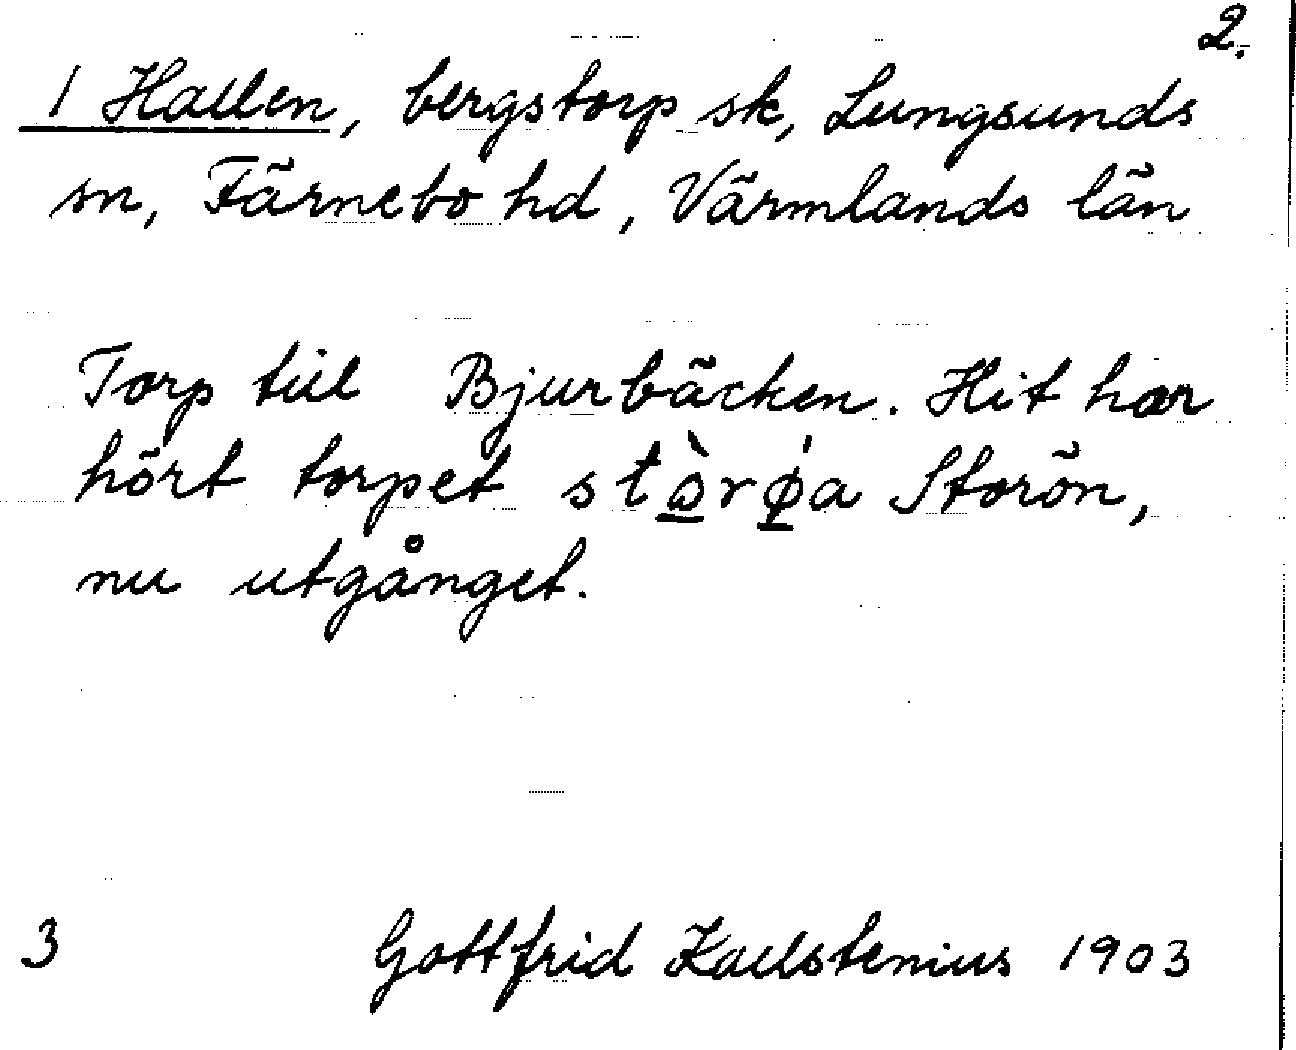 2.
1 Hallen, bergstorp sk, Lungsunds
sn, Färnebo hd, Värmlands län
Torp till Bjurbäcken. Hit har
hört torpet stò̱rǿ̱a Storön,
nu utgånget.
3 Gottfrid Kallstenius 1903